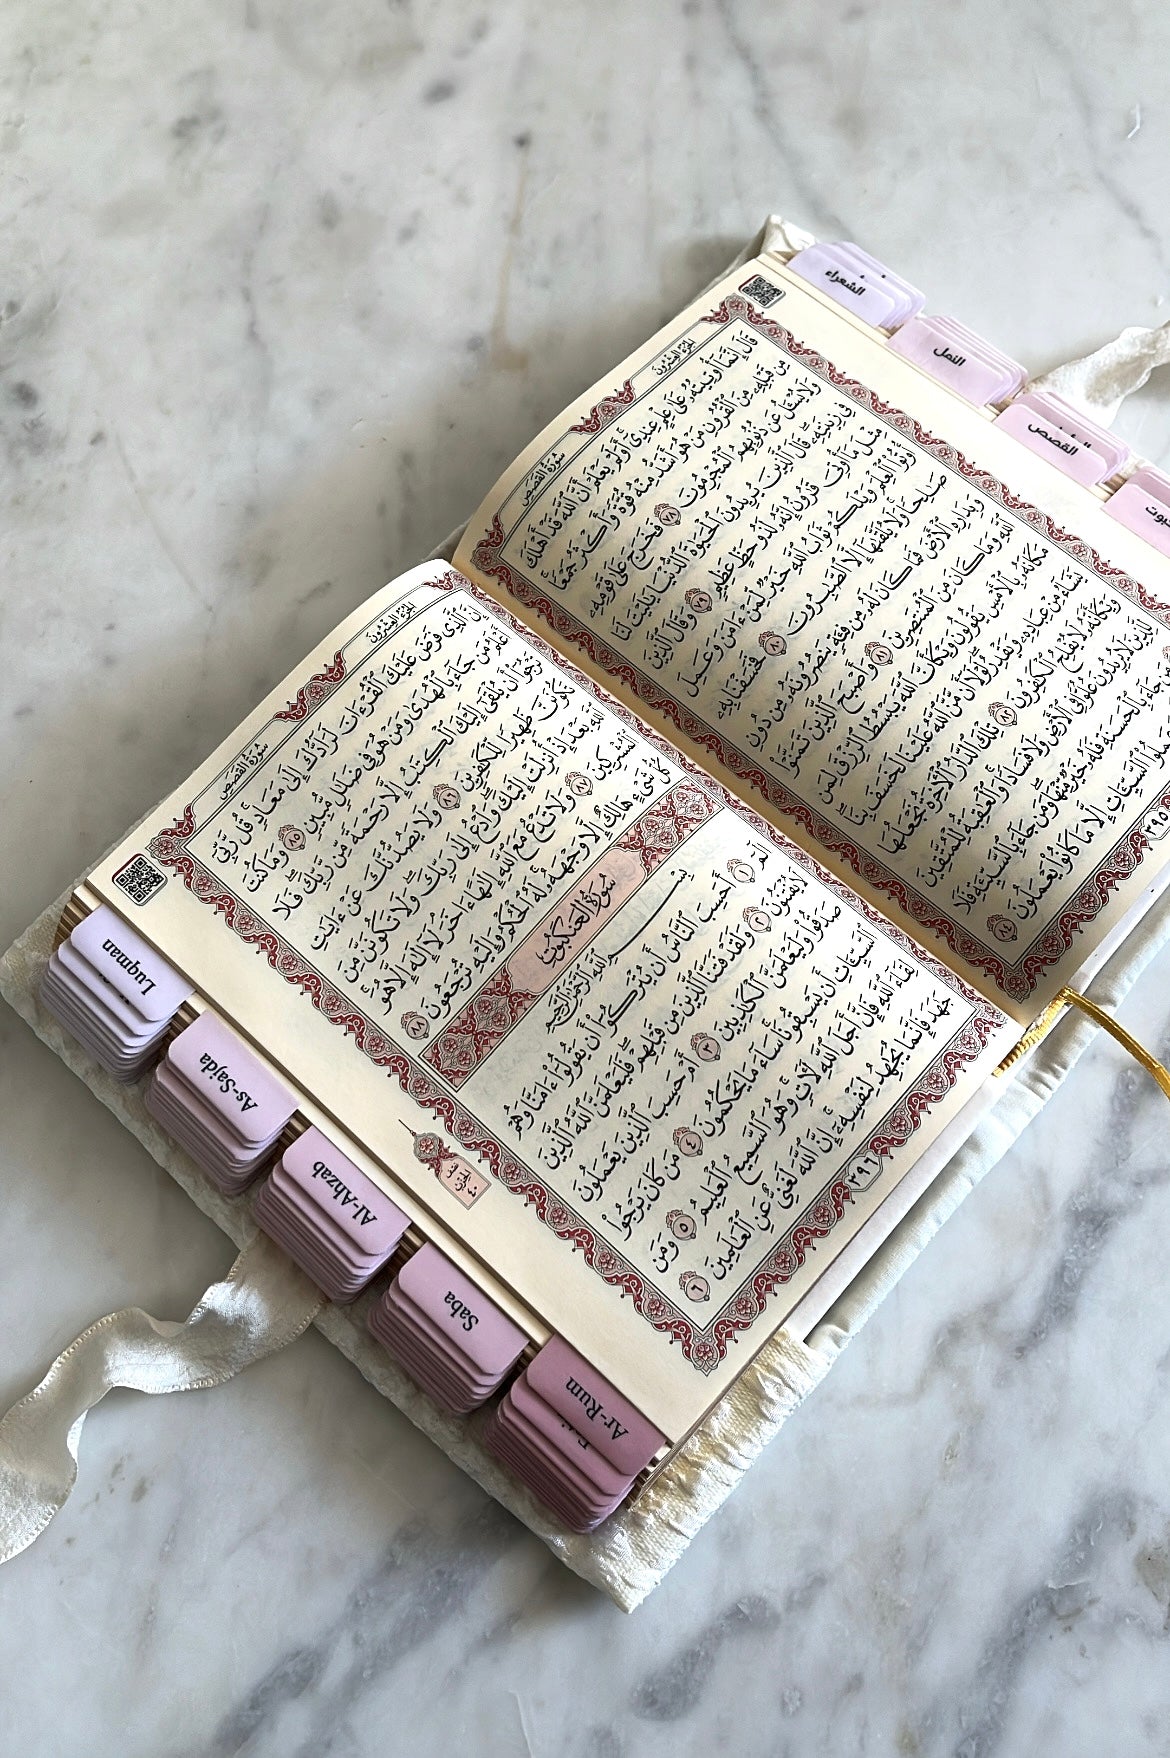 الشعراء
النمل
القصص
الجُزْءُ العِشْرُونَ
سُورَةُ القَصَصِ
قَالَ إِنَّمَآ أُوتِيتُهُۥ عَلَىٰ عِلْمٍ عِندِىٓۚ أَوَلَمْ يَعْلَمْ أَنَّ ٱللَّهَ قَدْ أَهْلَكَ
مِن قَبْلِهِۦ مِنَ ٱلْقُرُونِ مَنْ هُوَ أَشَدُّ مِنْهُ قُوَّةً وَأَكْثَرُ جَمْعًاۚ
وَلَا يُسْـَٔلُ عَن ذُنُوبِهِمُ ٱلْمُجْرِمُونَ ٧٨ فَخَرَجَ عَلَىٰ قَوْمِهِۦ
فِى زِينَتِهِۦۖ قَالَ ٱلَّذِينَ يُرِيدُونَ ٱلْحَيَوٰةَ ٱلدُّنْيَا يَٰلَيْتَ لَنَا
مِثْلَ مَآ أُوتِىَ قَٰرُونُ إِنَّهُۥ لَذُو حَظٍّ عَظِيمٍ ٧٩ وَقَالَ ٱلَّذِينَ
أُوتُوا۟ ٱلْعِلْمَ وَيْلَكُمْ ثَوَابُ ٱللَّهِ خَيْرٌ لِّمَنْ ءَامَنَ وَعَمِلَ
صَٰلِحًا وَلَا يُلَقَّىٰهَآ إِلَّا ٱلصَّٰبِرُونَ ٨٠ فَخَسَفْنَا بِهِۦ
وَبِدَارِهِ ٱلْأَرْضَ فَمَا كَانَ لَهُۥ مِن فِئَةٍ يَنصُرُونَهُۥ مِن دُونِ
ٱللَّهِ وَمَا كَانَ مِنَ ٱلْمُنتَصِرِينَ ٨١ وَأَصْبَحَ ٱلَّذِينَ تَمَنَّوْا۟
مَكَانَهُۥ بِٱلْأَمْسِ يَقُولُونَ وَيْكَأَنَّ ٱللَّهَ يَبْسُطُ ٱلرِّزْقَ لِمَن
يَشَآءُ مِنْ عِبَادِهِۦ وَيَقْدِرُۖ لَوْلَآ أَن مَّنَّ ٱللَّهُ عَلَيْنَا لَخَسَفَ بِنَاۖ
وَيْكَأَنَّهُۥ لَا يُفْلِحُ ٱلْكَٰفِرُونَ ٨٢ تِلْكَ ٱلدَّارُ ٱلْءَاخِرَةُ نَجْعَلُهَا
لِلَّذِينَ لَا يُرِيدُونَ عُلُوًّا فِى ٱلْأَرْضِ وَلَا فَسَادًاۚ وَٱلْعَٰقِبَةُ لِلْمُتَّقِينَ
مَن جَآءَ بِٱلْحَسَنَةِ فَلَهُۥ خَيْرٌ مِّنْهَاۖ وَمَن جَآءَ بِٱلسَّيِّئَةِ فَلَا
عَمِلُوا۟ ٱلسَّيِّـَٔاتِ إِلَّا مَا كَانُوا۟ يَعْمَلُونَ ٨٤
٣٩٥
الجُزْءُ العِشْرُونَ
سُورَةُ القَصَصِ
إِنَّ ٱلَّذِى فَرَضَ عَلَيْكَ ٱلْقُرْءَانَ لَرَآدُّكَ إِلَىٰ مَعَادٍۚ قُل رَّبِّىٓ
أَعْلَمُ مَن جَآءَ بِٱلْهُدَىٰ وَمَنْ هُوَ فِى ضَلَٰلٍ مُّبِينٍ ٨٥ وَمَا كُنتَ
تَرْجُوٓا۟ أَن يُلْقَىٰٓ إِلَيْكَ ٱلْكِتَٰبُ إِلَّا رَحْمَةً مِّن رَّبِّكَۖ فَلَا
تَكُونَنَّ ظَهِيرًا لِّلْكَٰفِرِينَ ٨٦ وَلَا يَصُدُّنَّكَ عَنْ ءَايَٰتِ
ٱللَّهِ بَعْدَ إِذْ أُنزِلَتْ إِلَيْكَۖ وَٱدْعُ إِلَىٰ رَبِّكَۖ وَلَا تَكُونَنَّ مِنَ
ٱلْمُشْرِكِينَ ٨٧ وَلَا تَدْعُ مَعَ ٱللَّهِ إِلَٰهًا ءَاخَرَۘ لَآ إِلَٰهَ إِلَّا هُوَۚ
كُلُّ شَىْءٍ هَالِكٌ إِلَّا وَجْهَهُۥۚ لَهُ ٱلْحُكْمُ وَإِلَيْهِ تُرْجَعُونَ ٨٨
سُورَةُ العَنكَبُوتِ
بِسْمِ ٱللَّهِ ٱلرَّحْمَٰنِ ٱلرَّحِيمِ
الٓمٓ ١ أَحَسِبَ ٱلنَّاسُ أَن يُتْرَكُوٓا۟ أَن يَقُولُوٓا۟ ءَامَنَّا وَهُمْ
لَا يُفْتَنُونَ ٢ وَلَقَدْ فَتَنَّا ٱلَّذِينَ مِن قَبْلِهِمْۖ فَلَيَعْلَمَنَّ ٱللَّهُ ٱلَّذِينَ
صَدَقُوا۟ وَلَيَعْلَمَنَّ ٱلْكَٰذِبِينَ ٣ أَمْ حَسِبَ ٱلَّذِينَ يَعْمَلُونَ
ٱلسَّيِّـَٔاتِ أَن يَسْبِقُونَاۚ سَآءَ مَا يَحْكُمُونَ ٤ مَن كَانَ يَرْجُوا۟
لِقَآءَ ٱللَّهِ فَإِنَّ أَجَلَ ٱللَّهِ لَءَاتٍۚ وَهُوَ ٱلسَّمِيعُ ٱلْعَلِيمُ ٥ وَمَن
جَٰهَدَ فَإِنَّمَا يُجَٰهِدُ لِنَفْسِهِۦٓۚ إِنَّ ٱللَّهَ لَغَنِىٌّ عَنِ ٱلْعَٰلَمِينَ ٦
٣٩٦
Luqman
As-Sajda
Al-Ahzab
Saba
Ar-Rum